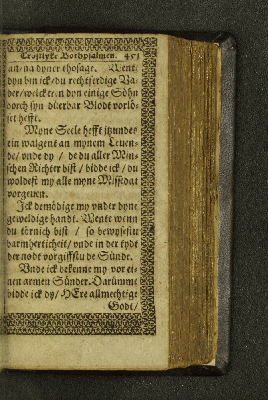 Tröstlyke Bothpsalmen. 451
an/na dyner thosage. Wente
dyn bin ick/du rechtferdige Va-
der/welcker dyn einige Söhn
dorch syn dürbar Blodt vorlö-
set hefft.
Myne Seele hefft itzundes
ein walgent an mynem Leuen-
de/vnde dy / de du aller Min-
schen Richter bist / bidde ick / du
woldest my alle myne Missdat
vorgeuen.
Ick demödige my vnder dyne
geweldige handt. Wente wenn
du törnich bist / so bewysestu
barmherticheit/ vnde in der tydt
der nodt vorgiffstu de Sünde.
Vnde ick bekenne my vor ei-
nen armen Sünder. Darümme
bidde ick dy/ HEre allmechtige
Godt/